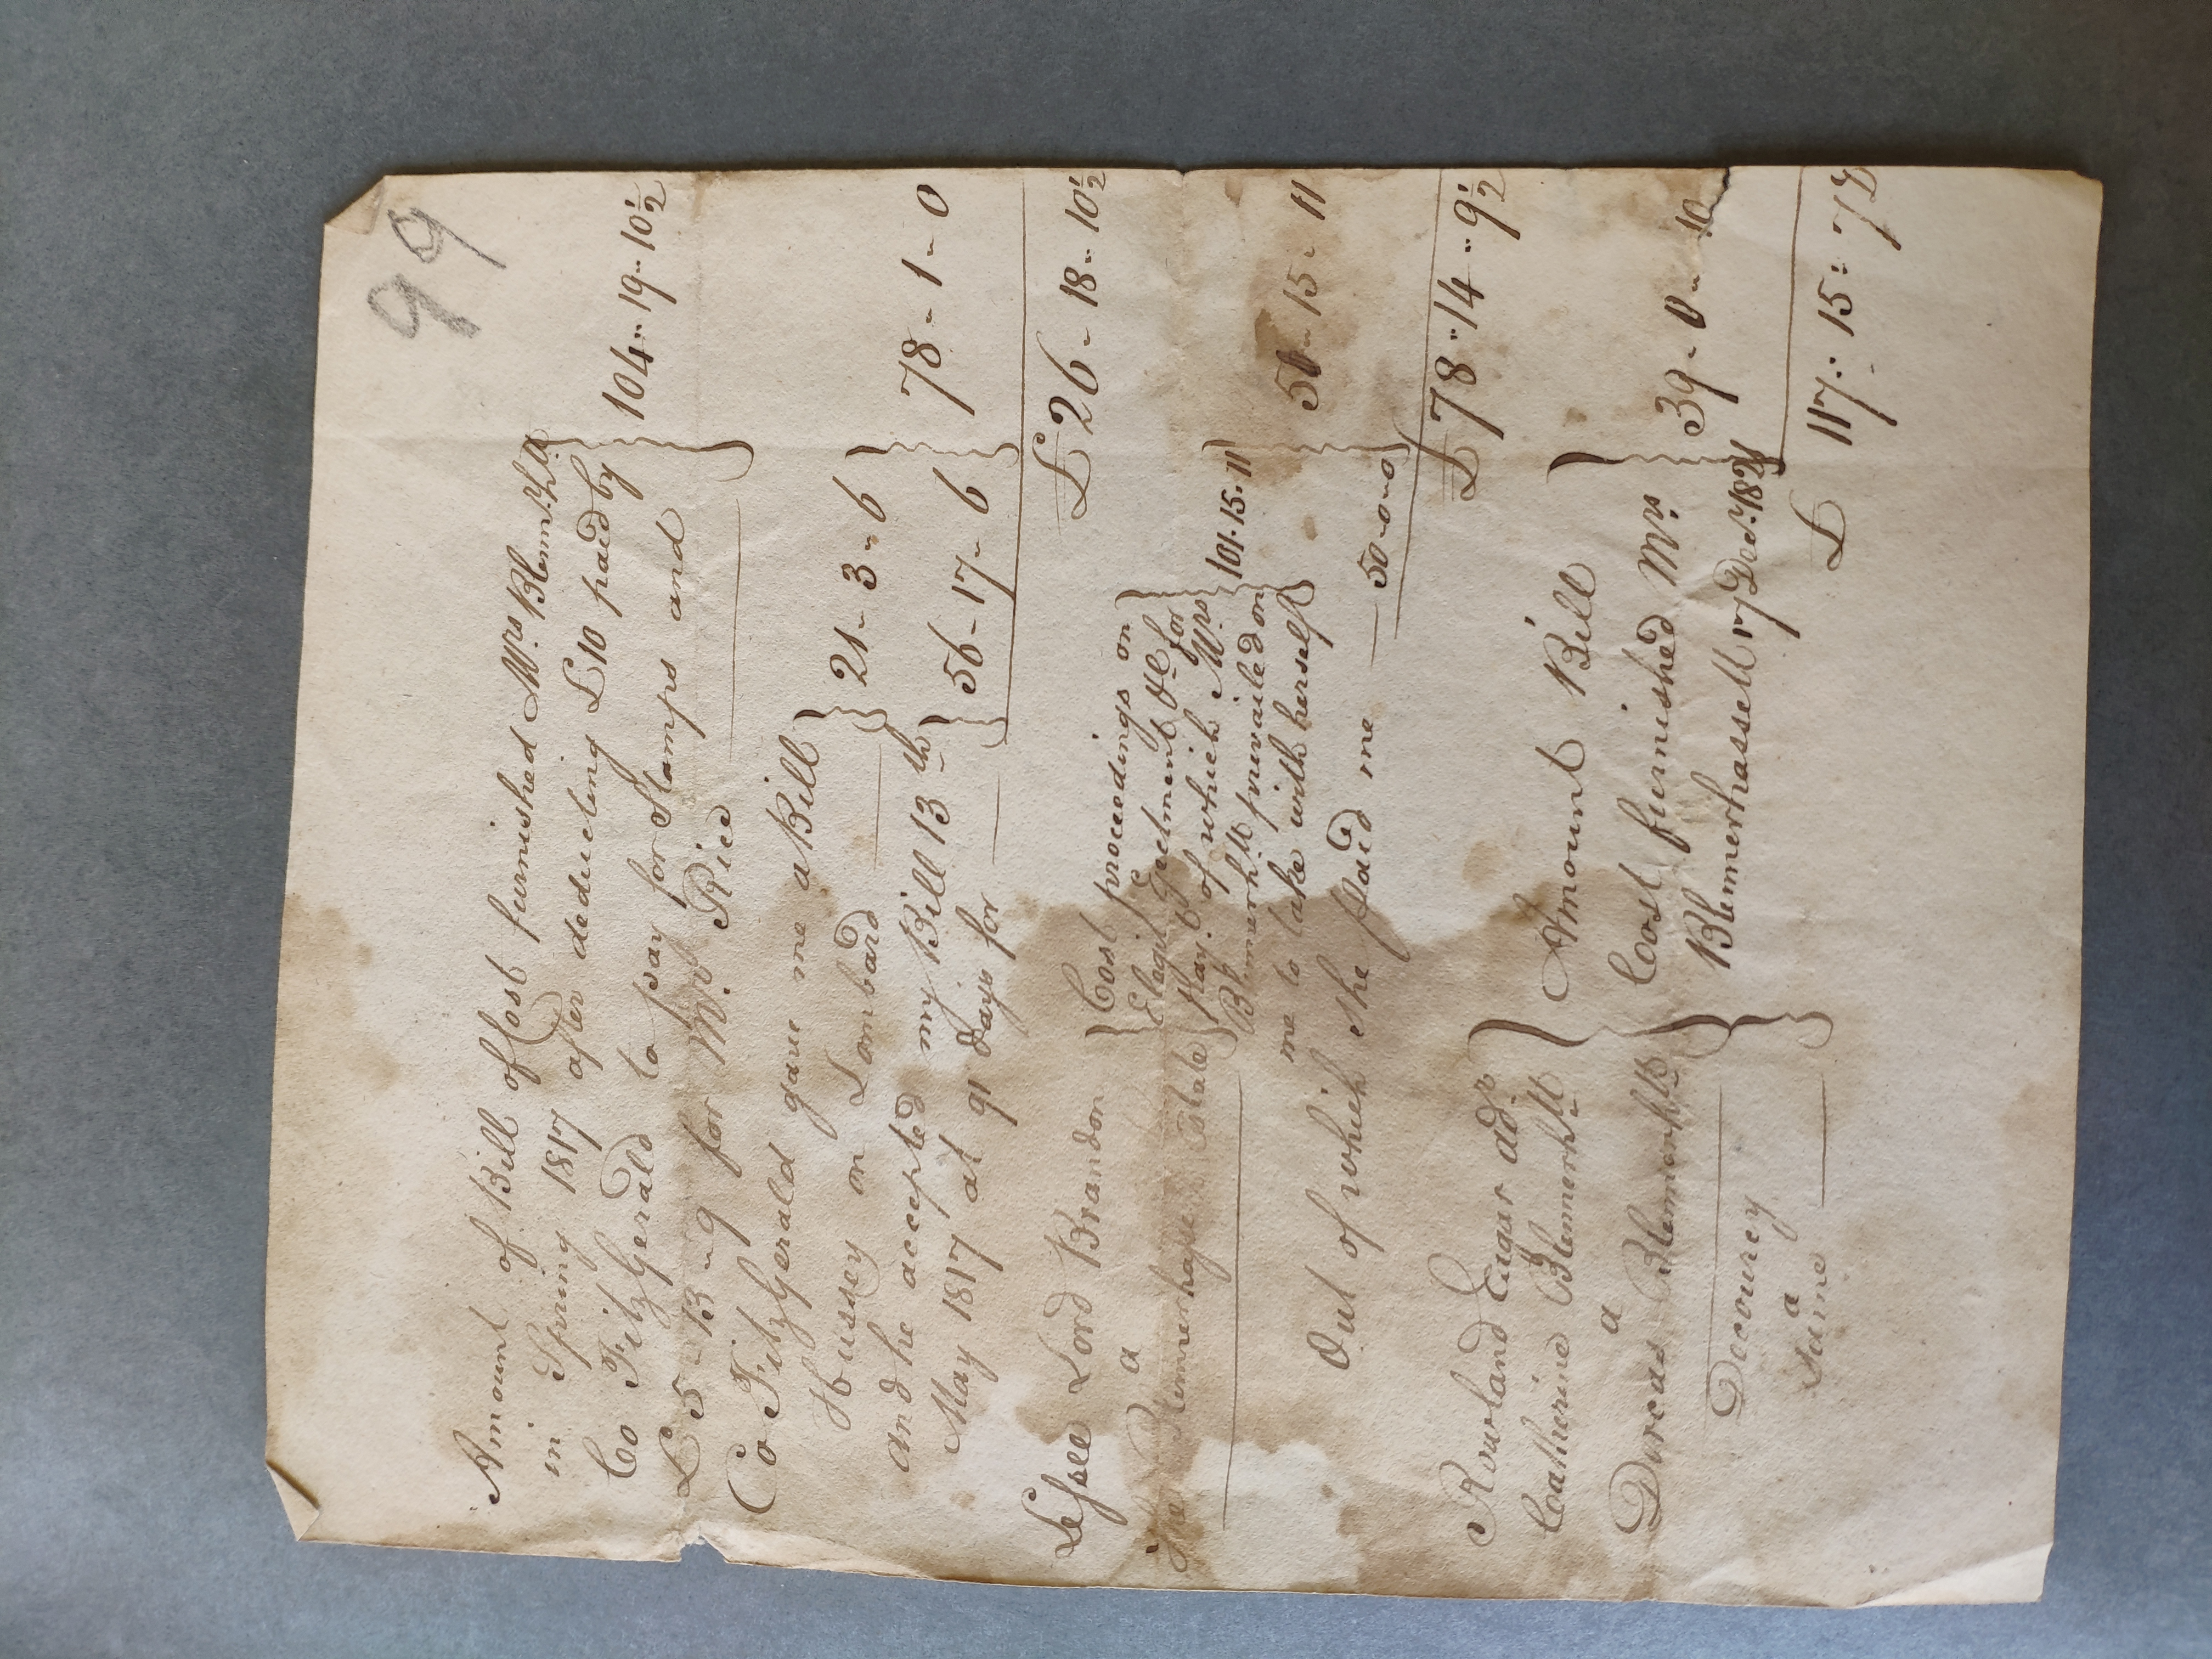 99
Amount of Bill of Cost furnished Mrs. Blennrh.tt
in Spring 1817 after deducting £10 paid by
Co FitzGerald to pay for Stamps and
£5-13-9 for Mr. Rice
104-19-10½
Co FitzGerald gave me a Bill
Hussey on Lombard
21-3-6
and he accepted my Bill 13th
May 1817 at 91 days for
56-17-6
78-1-0
£26-18-10½
Lessee Lord Brandon
a
Blennerhassett Estate
Cost proceedings on
Elegit Ejectment &c for
of which Mrs
Blennerhtt prevailed on
me to take with herself
101-15-11
Out of which she paid me
50-0-0
51-15-11
£78-14-9½
Rowland Eagar adr.
Catherine Blennerhtt
a
Dorcas Blennerhtt
Decourcy
a
Same
Amount Bill
Cost furnished Mrs.
Blennerhassett 17 Decr. 1821
39-0-10
£117-15-7½